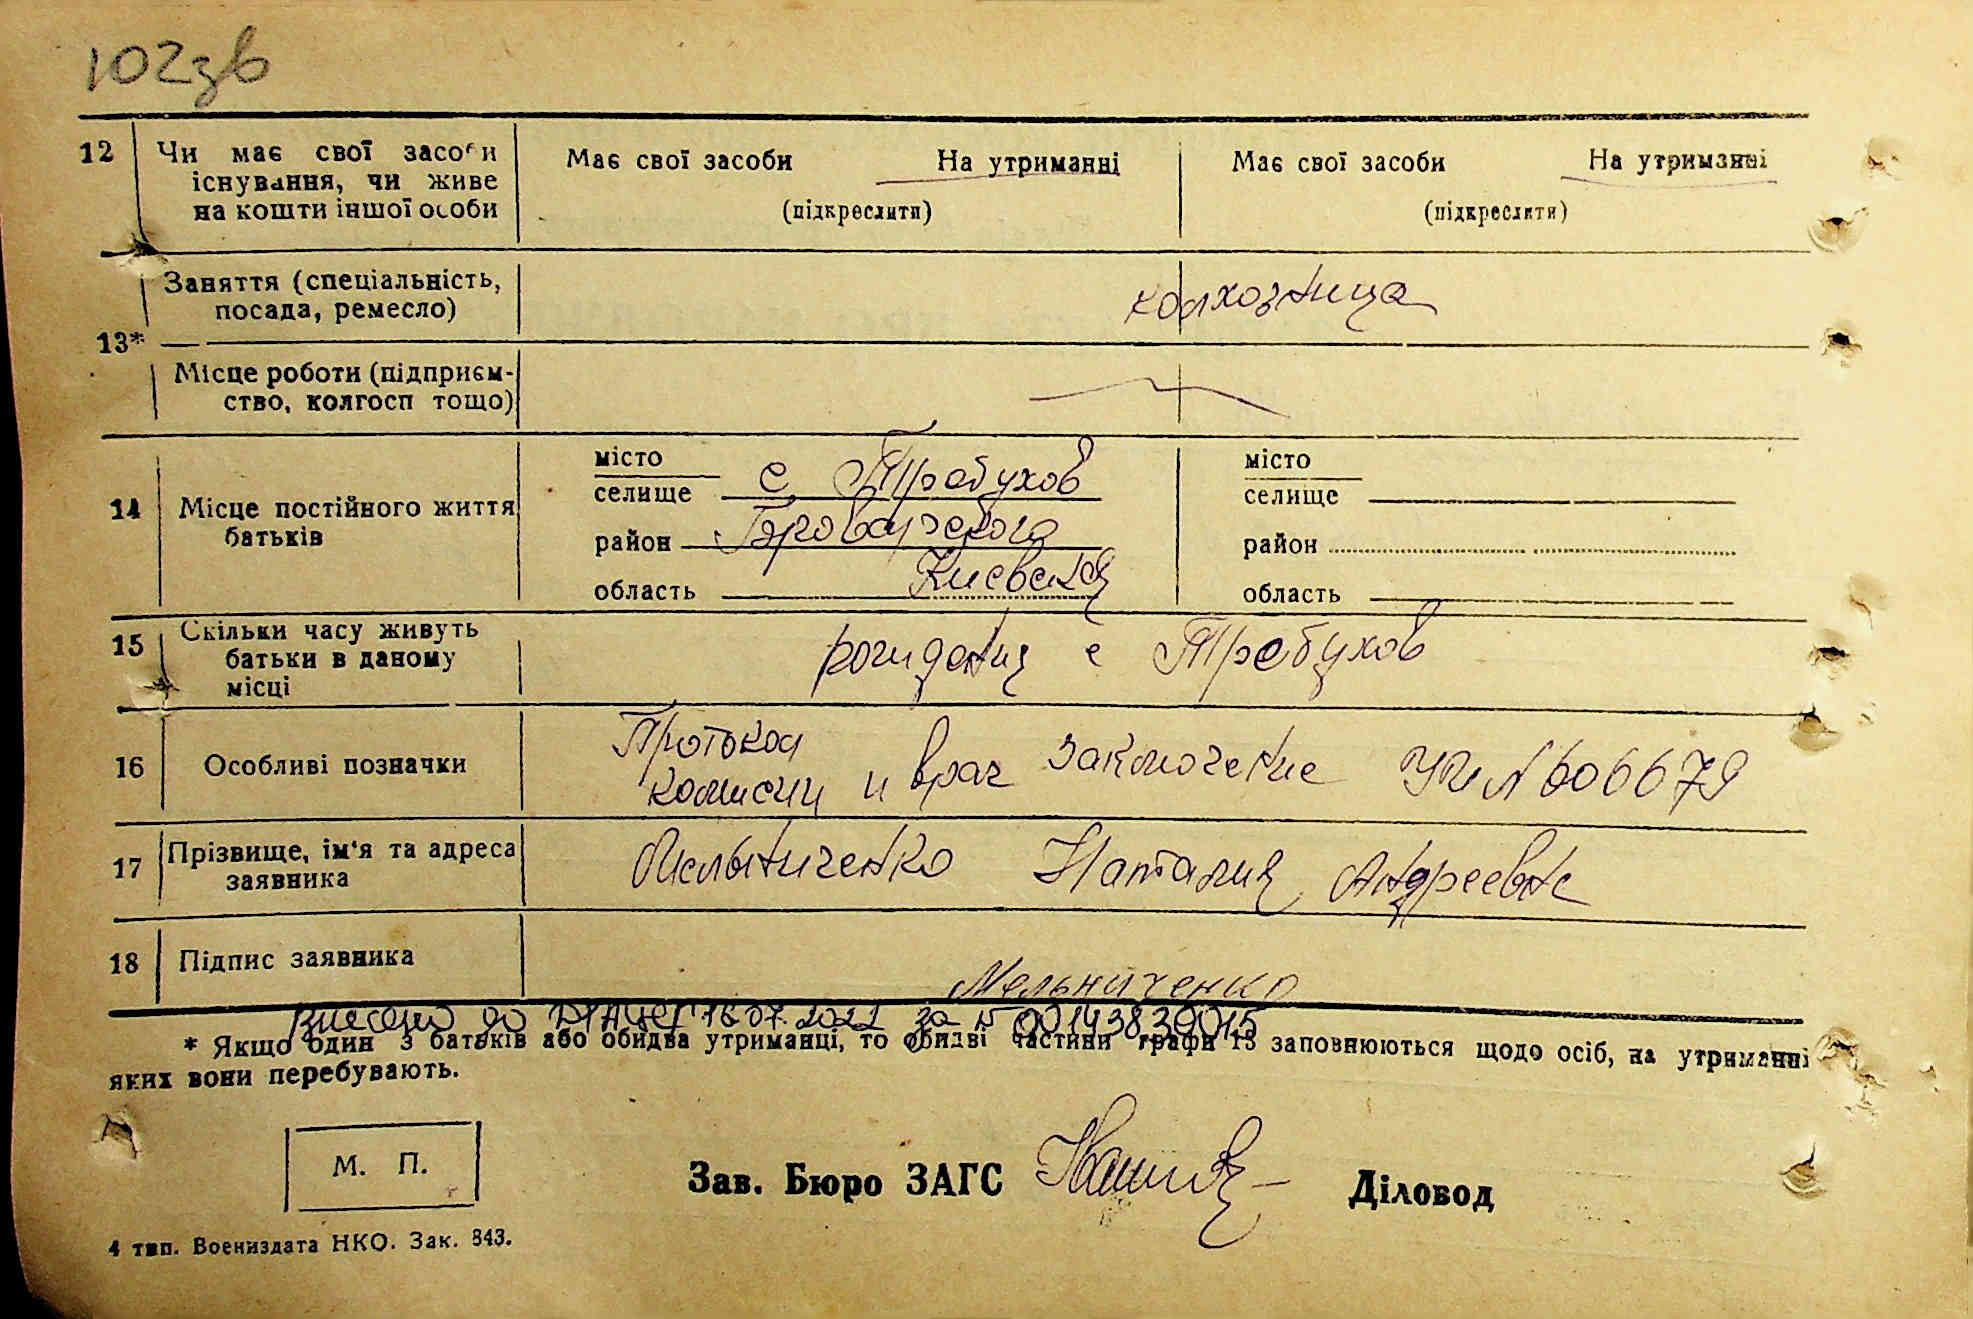 102зв
12 Чи має свої засоби Має свої засоби На утриманні Має свої засоби На утриманні
існування, чи живе
на кошти іншої особи (підкреслити) (підкреслити)
Заняття (спеціальність, колхозница
посада, ремесло)
13*
Місце роботи (підприєм-
ство, колгосп тощо)
місто місто
селище с Требухов селище
14 Місце постійного життя
батьків
район Броварского район
область Киевская область
15 Скільки часу живуть
батьки в даному с Требухов
місці
16 Особливі позначки Протокол
комиссии и врач заключение № 606679
17 Прізвище, ім'я та адреса Мельниченко Наталия Андреевна
заявника
18 Підпис заявника Мельниченко
Внесено до ДРАЦСГ 16.07.2022 за № 00143839015
* Якщо один з батьків або обидва утриманці, то обидві частини графи 13 заповнюються щодо осіб, на утриманні
яких вони перебувають.
М. П.
Зав. Бюро ЗАГС Діловод
4 тип. Воениздата НКО. Зак. 843.